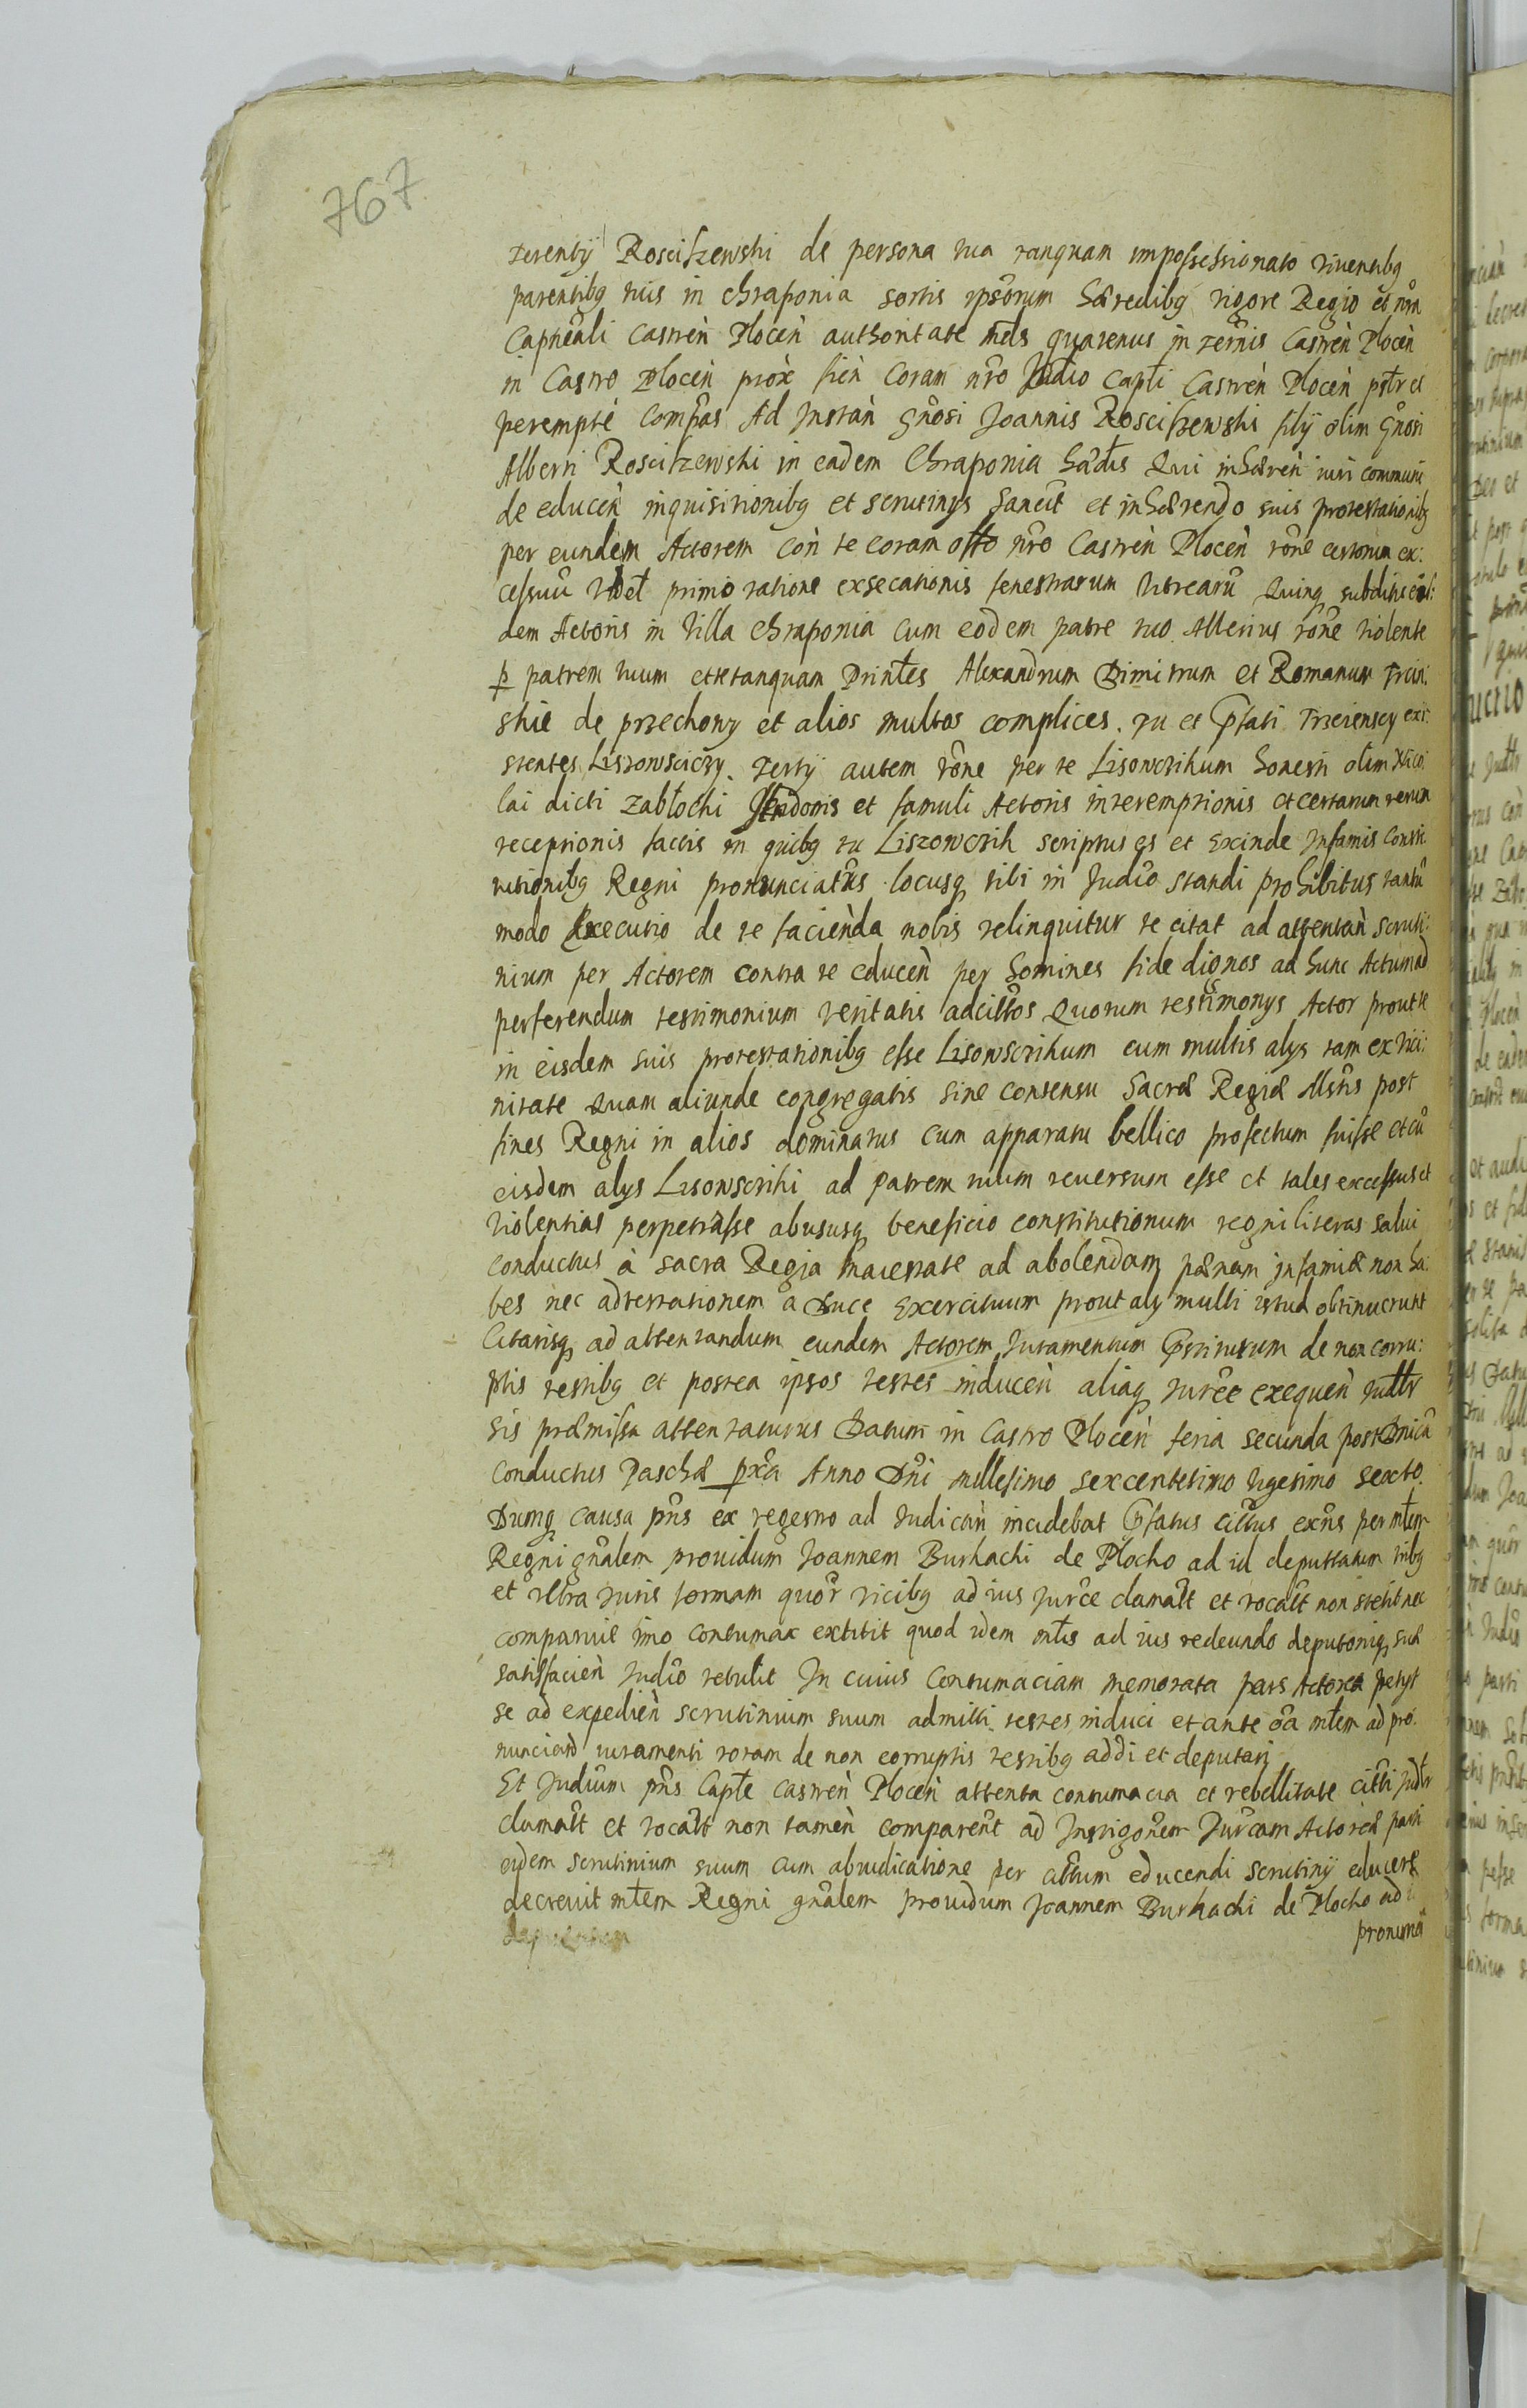 767
Terentij Roscisżewski de persona tua tanquam impossessionato viventibq
parentibq tuis in Chraponia sortis ipsorum haeredibq rigore Regio et nrã
Capneali Castren Plocen authoritate mds quatenus in terñis Castren Plocen
in Castro Plocen prox fien Coram nrõ Judio Capti Castren Plocen pstr et
perempte compãs Ad Instan gñosi Joannis Rosciszewski filij olim gñosi
Alberti Rosciszewski in eadem Chraponia hãdis Qui inhaeren iuri communi
de educen inquisitionibq et scrutinys sancit et inhaerendo suis protestationibq
per eundem Actorem con te coram offo nrõ Castren Plocen rõne certorum ex:
cessuũ vidbet primo ratione exsecationis fenestrarum vitrearũ Quinq subditis eius:
dem Actoris in Villa Chraponia cum eodem patre tuo Alterius rõne violente
p patrem tuum et te tanquam Printes Alexandrum Dimitrum et Romanum Trcin:
skie de przechowy et alios multos complices. tu et Pfati Trzcienscy exi:
stentes Liszowsciczy. Tertij autem rõne per te Lisowczikum honesti olim Nico
lai dicti Zablocki et famuli Actoris interemptionis et certarum rerum
receptionis factis in quibq tu Liszowczik scriptus es et Exinde Infamis consti:
tutionibq Regni pronunciatũs locusq tibi in Judio standi prohibitus tantũ
modo Executio de te facienda nobis relinquitur te citat ad attentan scruti:
nium per Actorem contra te educen per homines fide dignos ad hunc Actum ad
perferendum testimonium veritatis adcittos Quorum testimonys Actor prout te
in eisdem suis protestationibq esse Lisowscrikum cum multis alys tam ex vici:
nitate Quam aliunde congregatis sine consensu Sacrae Regiae Mtis post
fines Regni in alios dominatus cum apparatu bellico profectum fuisse et cũ
eisdem alys Lisowscriki ad patrem tuum reuersum esse et tales excessus et
violentias perpetrasse abususq beneficio constitutionum regni literas salui
conductus à sacra Regia maiestate ad abolendam paenam infamiae non ha:
bes nec adtestationem a Duce Exercituum prout aly multi istud obtinuerunt
Citarisq ad attentandum eundem Actorem Juramentum Pstiturum de non corru:
ptis testibq et postea ipsos testes inducen aliaq Jurce exequen Judtr
sis praemissa attentaturus Datum in Castro Plocen feria secunda post Dnicã
Conductus Paschae pxã Anno Dñi millesimo sexcentesimo vigesimo sexto.
Dumq causa pñs ex regestro ad Judican incidebat Pfatus cittus exñs per mtem
Regni gñalem prouidum Joannem Burkacki de Plocko ad id deputatum tribq
et vltra Juris formam quõr vicibq ad ius Jurce clamatt et vocatt non stetit nec
comparuit imo contumax extitit quod idem mtis ad ius redeundo deputoniq suae
satisfacien Judio retulit In cuius Contumaciam memorata pars Actorea petyt
se ad expedien scrutinium suum admitti testes induci et ante õa mtem ad pro:
nunciand iuramenti rotam de non corruptis testibq addi et deputari
Et Judium pñs Capte Castren Plocen attenta contumacia et rebellitate citti Judtr
clamatt et vocatt non tamen comparent ad Instigonem Jurcam Actoreae parti
eidem scrutinium suum cum abiudicatione per attum educendi scrutinij educere
decreuit mtem Regni gñalem prouidum Joannem Burkacki de Plocko ad
pronuna